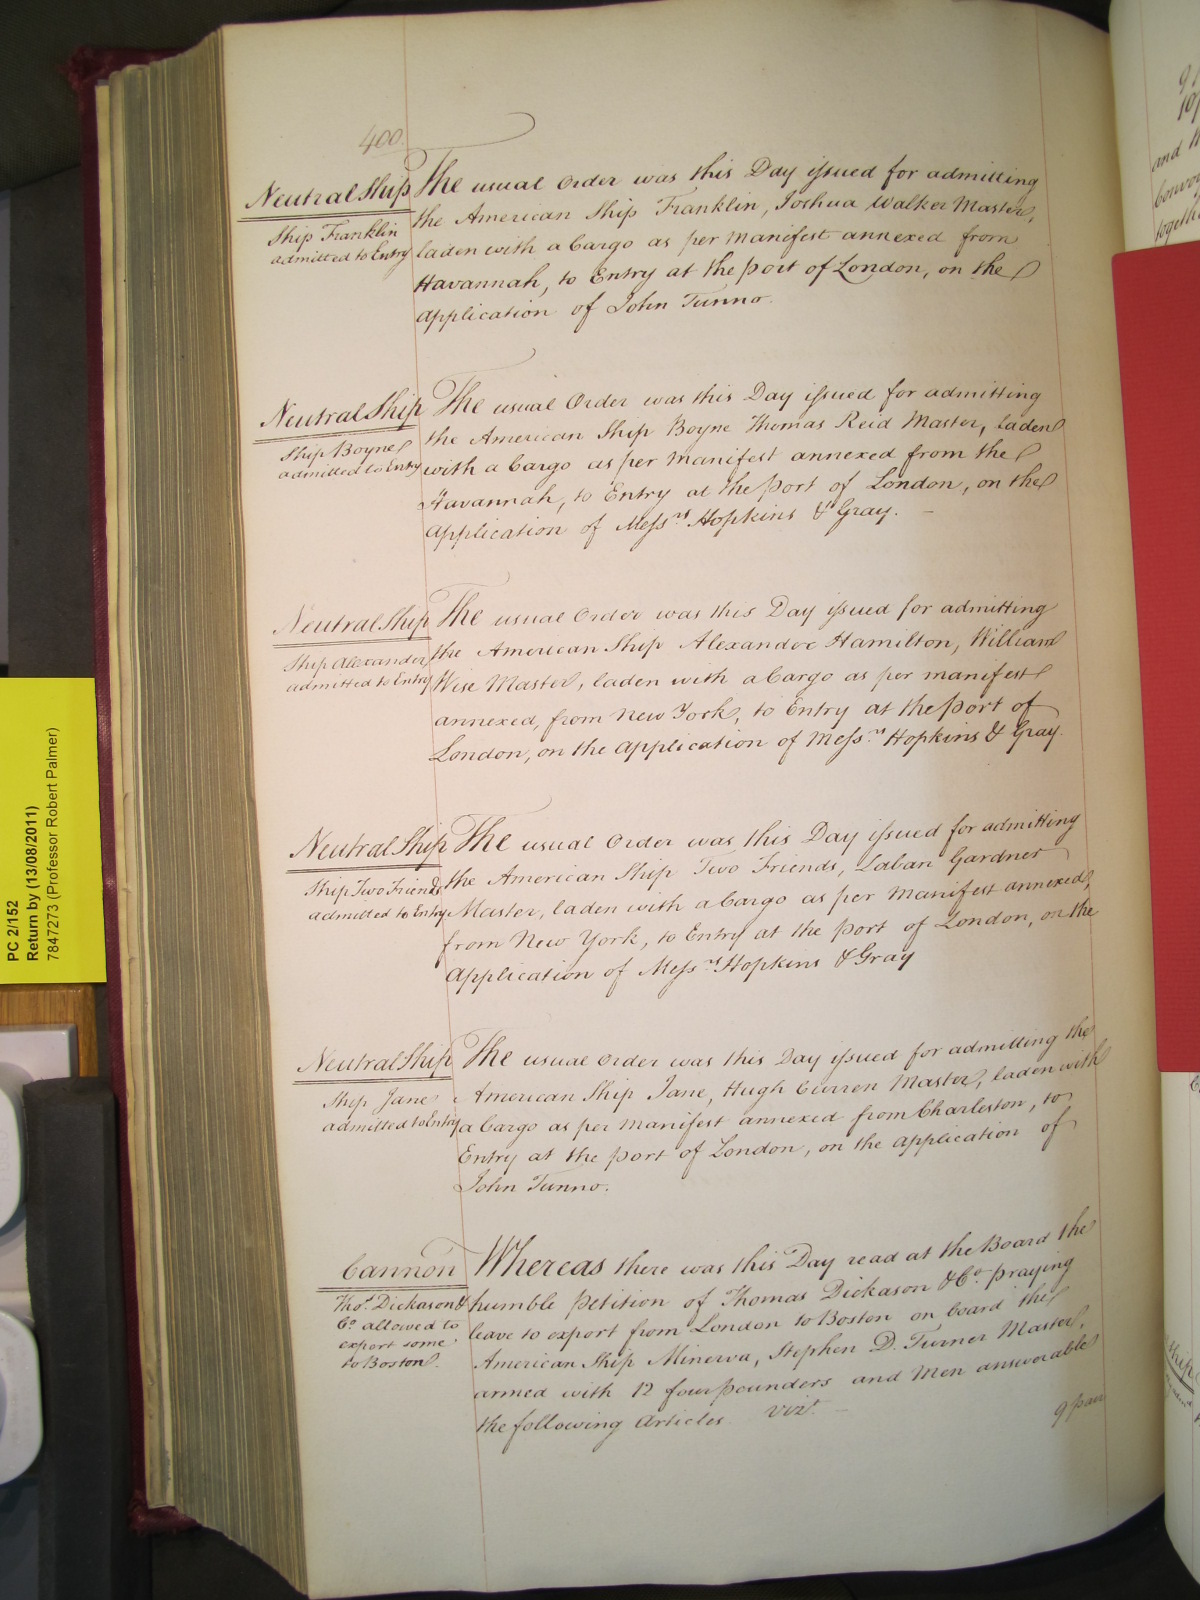 400.
Neutral Ship
Ship Franklin
admitted to Entry
The usual Order was this Day issued for admitting
the American Ship Franklin, Joshua Walker Master,
laden with a Cargo as per Manifest annexed from
Havannah, to Entry at the port of London, on the
Application of John Tunno.
Neutral Ship
Ship Boyne
admitted to Entry
The usual Order was this Day issued for admitting
the American Ship Boyne Thomas Reid Master, laden
with a Cargo as per Manifest annexed from the
Havannah, to Entry at the port of London, on the
Application of Messrs Hopkins & Gray.
Neutral Ship
Ship Alexander
admitted to Entry
The usual Order was this Day issued for admitting
the American Ship Alexander Hamilton, William
Wise Master, laden with a Cargo as per manifest
annexed, from New York, to Entry at the port of
London, on the Application of Messrs Hopkins & Gray.
Neutral Ship
Ship Two Friends
admitted to Entry
The usual Order was this Day issued for admitting
the American Ship Two Friends, Laban Gardner
Master, laden with a Cargo as per Manifest annexed,
from New York, to Entry at the port of London, on the
Application of Messrs Hopkins & Gray
Neutral Ship
Ship Jane
admitted to Entry
The usual Order was this Day issued for admitting the
American Ship Jane, Hugh Curren Master, laden with
a Cargo as per Manifest annexed from Charleston, to
Entry at the port of London, on the Application of
John Tunno.
Cannon
Thos. Dickason &
Co. allowed to
export some
to Boston.
Whereas there was this Day read at the Board the
humble Petition of Thomas Dickason & Co. praying
leave to export from London to Boston on board the
American Ship Minerva, Stephen D. Turner Master,
armed with 12 four pounders and Men answerable
the following Articles vizt.
9 pair
PC 2/152
Return by (13/08/2011)
7847273 (Professor Robert Palmer)
and